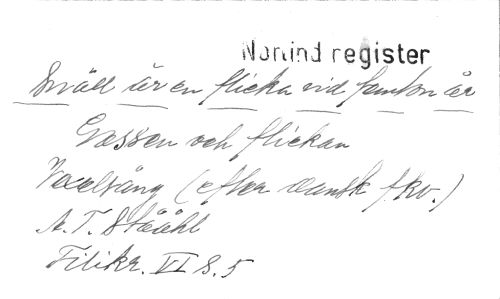 Nortind register
Snäll är en flicka vid femton år
Gossen och flickan
Växelsång (efter dansk f.kv.)
A. T. Stååhl
Filikr. VI S. 5